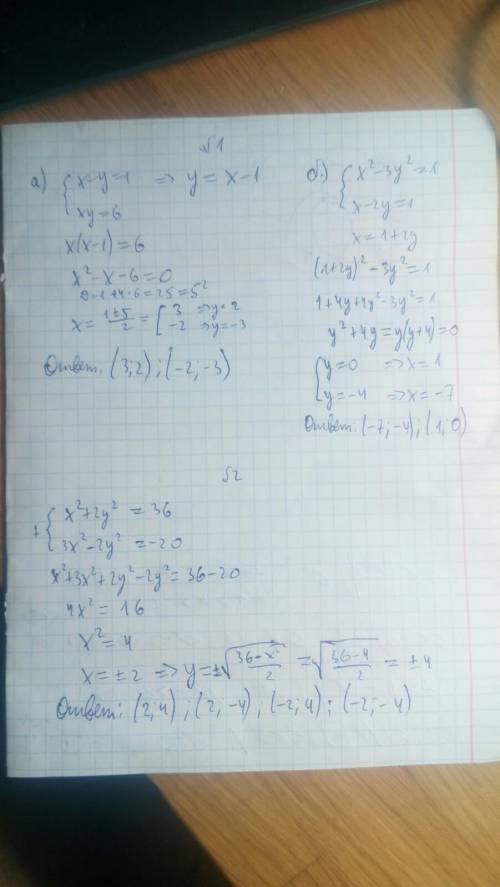 √1
а) { x-y=1 => y = x-1
xy=6
x(x-1)=6
x²-x-6=0
D=1+4·6=25=5²
x= 1±5/2 = [ 3 => y=2
-2 => y=-3
Ответ: (3;2);(-2,-3)
б) { x²-3y²=1
x-2y=1
x=1+2y
(1+2y)²-3y²=1
1+4y+4y²-3y²=1
y²+4y=y(y+4)=0
{ y=0 => x=1
y=-4 => x=-7
Ответ: (-7;-4);(1,0)
√2
+ { x²+2y² = 36
3x²-2y² = -20
x²+3x²+2y²-2y²=36-20
4x² = 16
x²=4
x=±2 => y=±√(36-x²/2) = √(36-4/2) = ±4
Ответ: (2;4);(2,-4),(-2;4);(-2;-4)